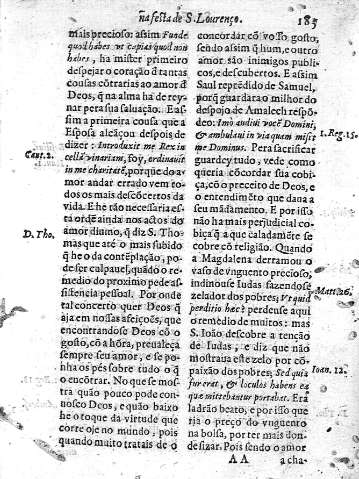 na festa de S. Lourenço. 185
mais precioso: assim Funde
quod habes vt capias quod non
habes, ha mister primeiro
despejar o coração d̃ tantas
cousas cõtrarias ao amor d̃
Deos, q̃ na alma há de rey-
nar pera sua saluação. E as
sim a primeira cousa que a
Esposa alcãçou despois de
dizer: Introduxit me Rex in
cellã vinariam, foy, ordinauit
in me charitatẽ, porque do a-
mor andar errado vem to-
dos os mais descõcertos da
vida. E he tão necessaria es-
ta ordẽ ainda nos actos do
amor diuino, q̃ diz S. Tho
mas que até o mais subido
q̃ he o da contẽplação, po-
de ser culpauel, quãdo o re-
medio do proximo pede as-
sistencia pessoal. Por onde
tal concerto quer Deos q̃
aja em nossas afeições, que
encontrandose Deos cõ o
gosto, cõ a hõra, preualeça
sempre seu amor, e se po-
nha os pés sobre tudo o q̃
o encõtrar. No que se mos-
tra quão pouco pode con-
nosco Deos, e quão baixo
he o toque da virtude que
corre oje no mundo, pois
quando muito tratais de o
Cant. 2.
D. Tho.
concordar cõ vosso gosto,
sendo assim q̃ hum, e outro
amor são inimigos publi-
cos, e descubertos. E assim
Saul reprẽdido de Samuel,
porq̃ guardara o milhor do
despojo de Amalech respõ-
deo: Imò audiui vocẽ Domini,
& ambulaui in via quam misit
me Dominus. Pera sacrificar
guardey tudo, vede como
queria cõcordar sua cobi-
ça, cõ o preceito de Deos, e
o entendimẽto que daua a
seu mãdamento. E por isso
não ha mais perjudicial co-
biça q̃ a que caladamẽte se
cobre cõ religião. Quando
a Magdalena derramou o
vaso de vnguento precioso,
indinouse Iudas fazendose
zelador dos pobres; Vt quid
perditio hæc? perdense aqui
o remedio de muitos: mas
S. Ioão descobre a tenção
de Iudas, e diz que não
mostraua este zelo por cõ-
paixão dos pobres; Sed quia
fur erat, & loculos habens ea
quæ mittebantur portabat. Era
ladrão beato, e por isso que
ria o preço do vnguento
na bolsa, por ter mais don-
de sizar. Pois sendo o amor
1. Reg. 15.
Matt. 26.
Ioan. 12.
A A a cha-